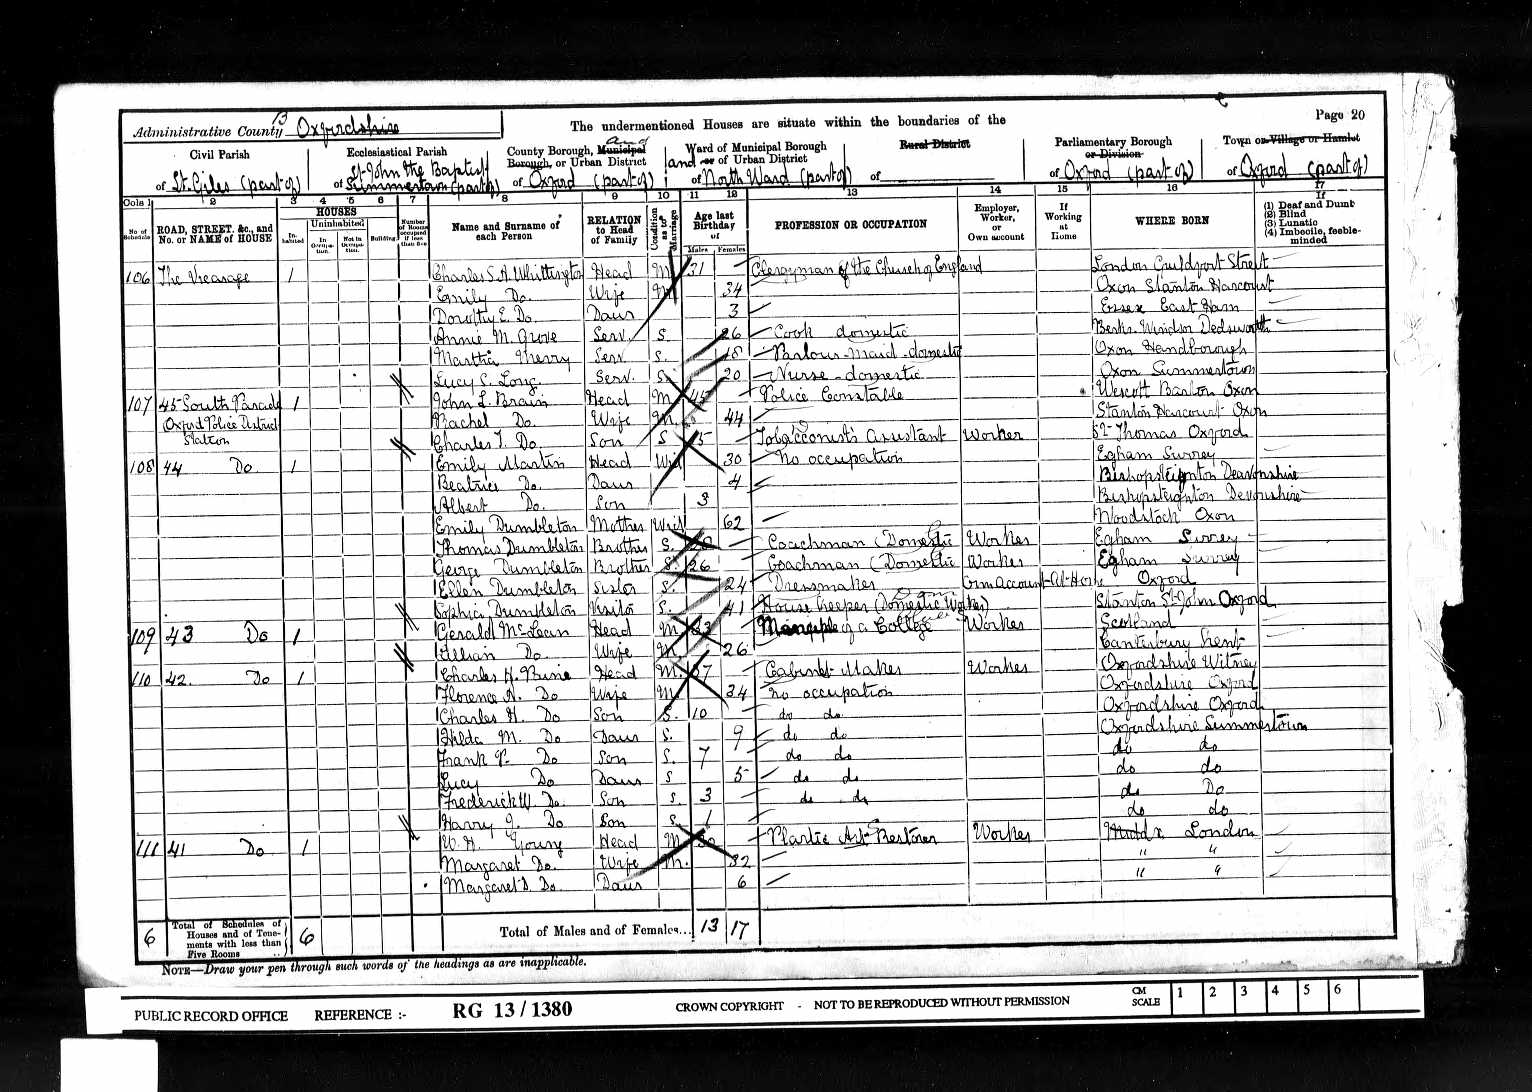 Administrative County 13 Oxfordshire
The undermentioned Houses are situate within the boundaries of the
Page 20
Civil Parish of St. Giles (part of)
Ecclesiastical Parish of St John the Baptist Summertown (part of)
County Borough, Municipal Borough, or Urban District of Oxford (part of)
and
Ward of Municipal Borough and or of Urban District of North Ward (part of)
Rural District of
Parliamentary Borough or Division of Oxford (part of)
Town or Village or Hamlet of Oxford (part of)
Cols 1 2 3 4 5 6 7 8 9 10 11 12 13 14 15 16 17
No. of Schedule
ROAD, STREET, &c., and No. or NAME of HOUSE
HOUSES
Inhabited
Uninhabited
In Occupation.
Not in Occupation.
Building
Number of Rooms occupied if less than five
Name and Surname of each Person
RELATION to Head of Family
Condition as to Marriage
Age last Birthday of
Males Females
PROFESSION OR OCCUPATION
Employer, Worker, or Own account
If Working at Home
WHERE BORN
If
(1) Deaf and Dumb
(2) Blind
(3) Lunatic
(4) Imbecile, feeble-minded
106 The Vicarage 1 Charles S. A. Whittington Head M 31 Clergyman of the Church of England London Guildford Street
Emily Do. Wife M 34 Oxon Stanton Harcourt
Dorothy E. Do. Daur 3 Essex East Ham
Annie M. Grove Serv. S. 26 Cook domestic Berks. Windsor Dedworth
Martha Merry Serv. S. 18 Parlour-maid-domestic Oxon Handborough
Lucy C. Long. Serv. S. 20 Nurse-domestic Oxon Summertown
107 45 South Parade 1 John L. Brain Head M 45 Police Constable Wescott Barton Oxon
Oxford Police District Station Rachel Do. Wife M. 44 Stanton Harcourt Oxon
Charles T. Do. Son S 15 Tobacconist's Assistant Worker St Thomas Oxford
108 44 Do 1 Emily Martin Head Wid 30 No occupation Egham Surrey
Beatrice Do. Daur 4 Bishopsteignton Devonshire
Albert Do. Son 3 Bishopsteignton Devonshire
Emily Dumbleton Mother Wid 62 Woodstock Oxon
Thomas Dumbleton Brother S. 28 Coachman (Domestic Worker Egham Surrey
George Dumbleton Brother S. 26 Coachman (Domestic Worker Egham Surrey
Ellen Dumbleton Sister S. 24 Dressmaker Own Account At Home Oxford
Sophia Dumbleton Visitor S. 41 House Keeper (Domestic Worker) Dom Stanton St John Oxford
109 43 Do 1 Gerald McLean Head M 33 Manciple of a College Worker Scotland
Lilian Do. Wife M. 26 Canterbury Kent
110 42. Do 1 Charles H. Head M. 37 Cabinet Maker Worker Oxfordshire Witney
Florence A. Do Wife M 34 no occupation Oxfordshire Oxford
Charles H. Do Son S. 10 do do. Oxfordshire Oxford
Hilda M. Do Daur S. 9 do do Oxfordshire Summertown
Frank Do Son S. 7 do do do do
Lucy Do Daur S 5 do do do do
Frederick W. Do. Son S. 3 do do do Do
Harry J. Do Son S. 1 do do
111 41 Do 1 W. H. Young Head M 30 Plastic Art Restorer Worker Middx London
Margaret Do. Wife M. 32 " "
Margaret D. Do. Daur 6 " "
6 Total of Schedules of Houses and of Tenements with less than Five Rooms 6
Total of Males and of Females... 13 17
NOTE—Draw your pen through such words of the headings as are inapplicable.
PUBLIC RECORD OFFICE REFERENCE :- RG 13 / 1380 CROWN COPYRIGHT - NOT TO BE REPRODUCED WITHOUT PERMISSION
CM SCALE 1 2 3 4 5 6